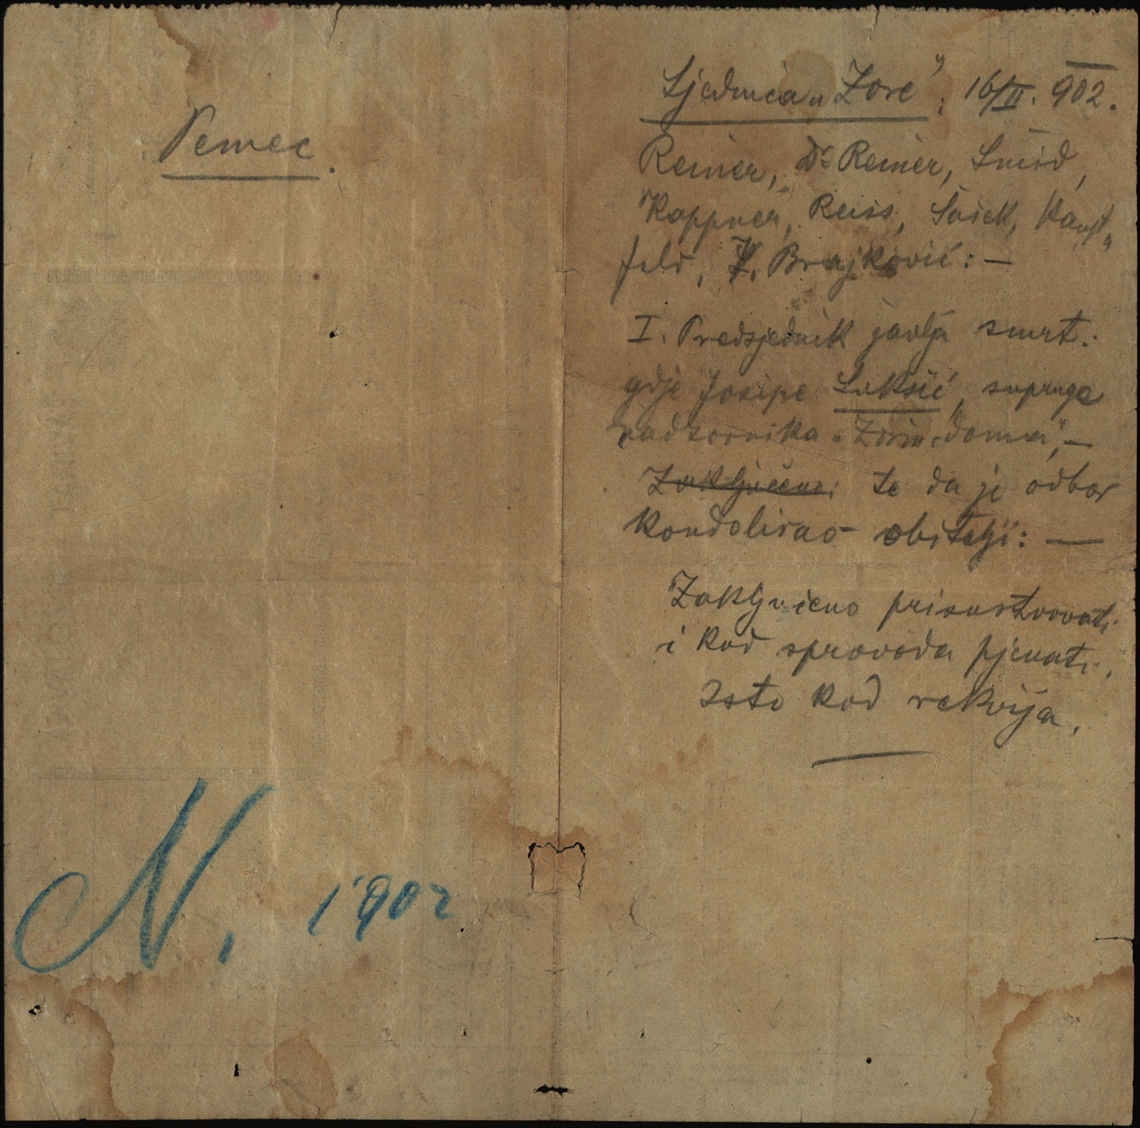 Pemec.
N. 1902
Sjednica „Zore“: 16/II. 902.
Reiner, Dr Reiner, Šmid,
Kappner, Reiss, Šaiek, Kauf„
feld, Brajković: —
I. Predsjednik javlja smrt
gdje Josipe Lukšić, supruge
nadzornika „Zorin-doma“, —
Zaključeno; te da je odbor
kondolirao obitelji: —
Zaključeno prisustvovati
i kod sprovoda pjevati.
Isto kod rekvija.